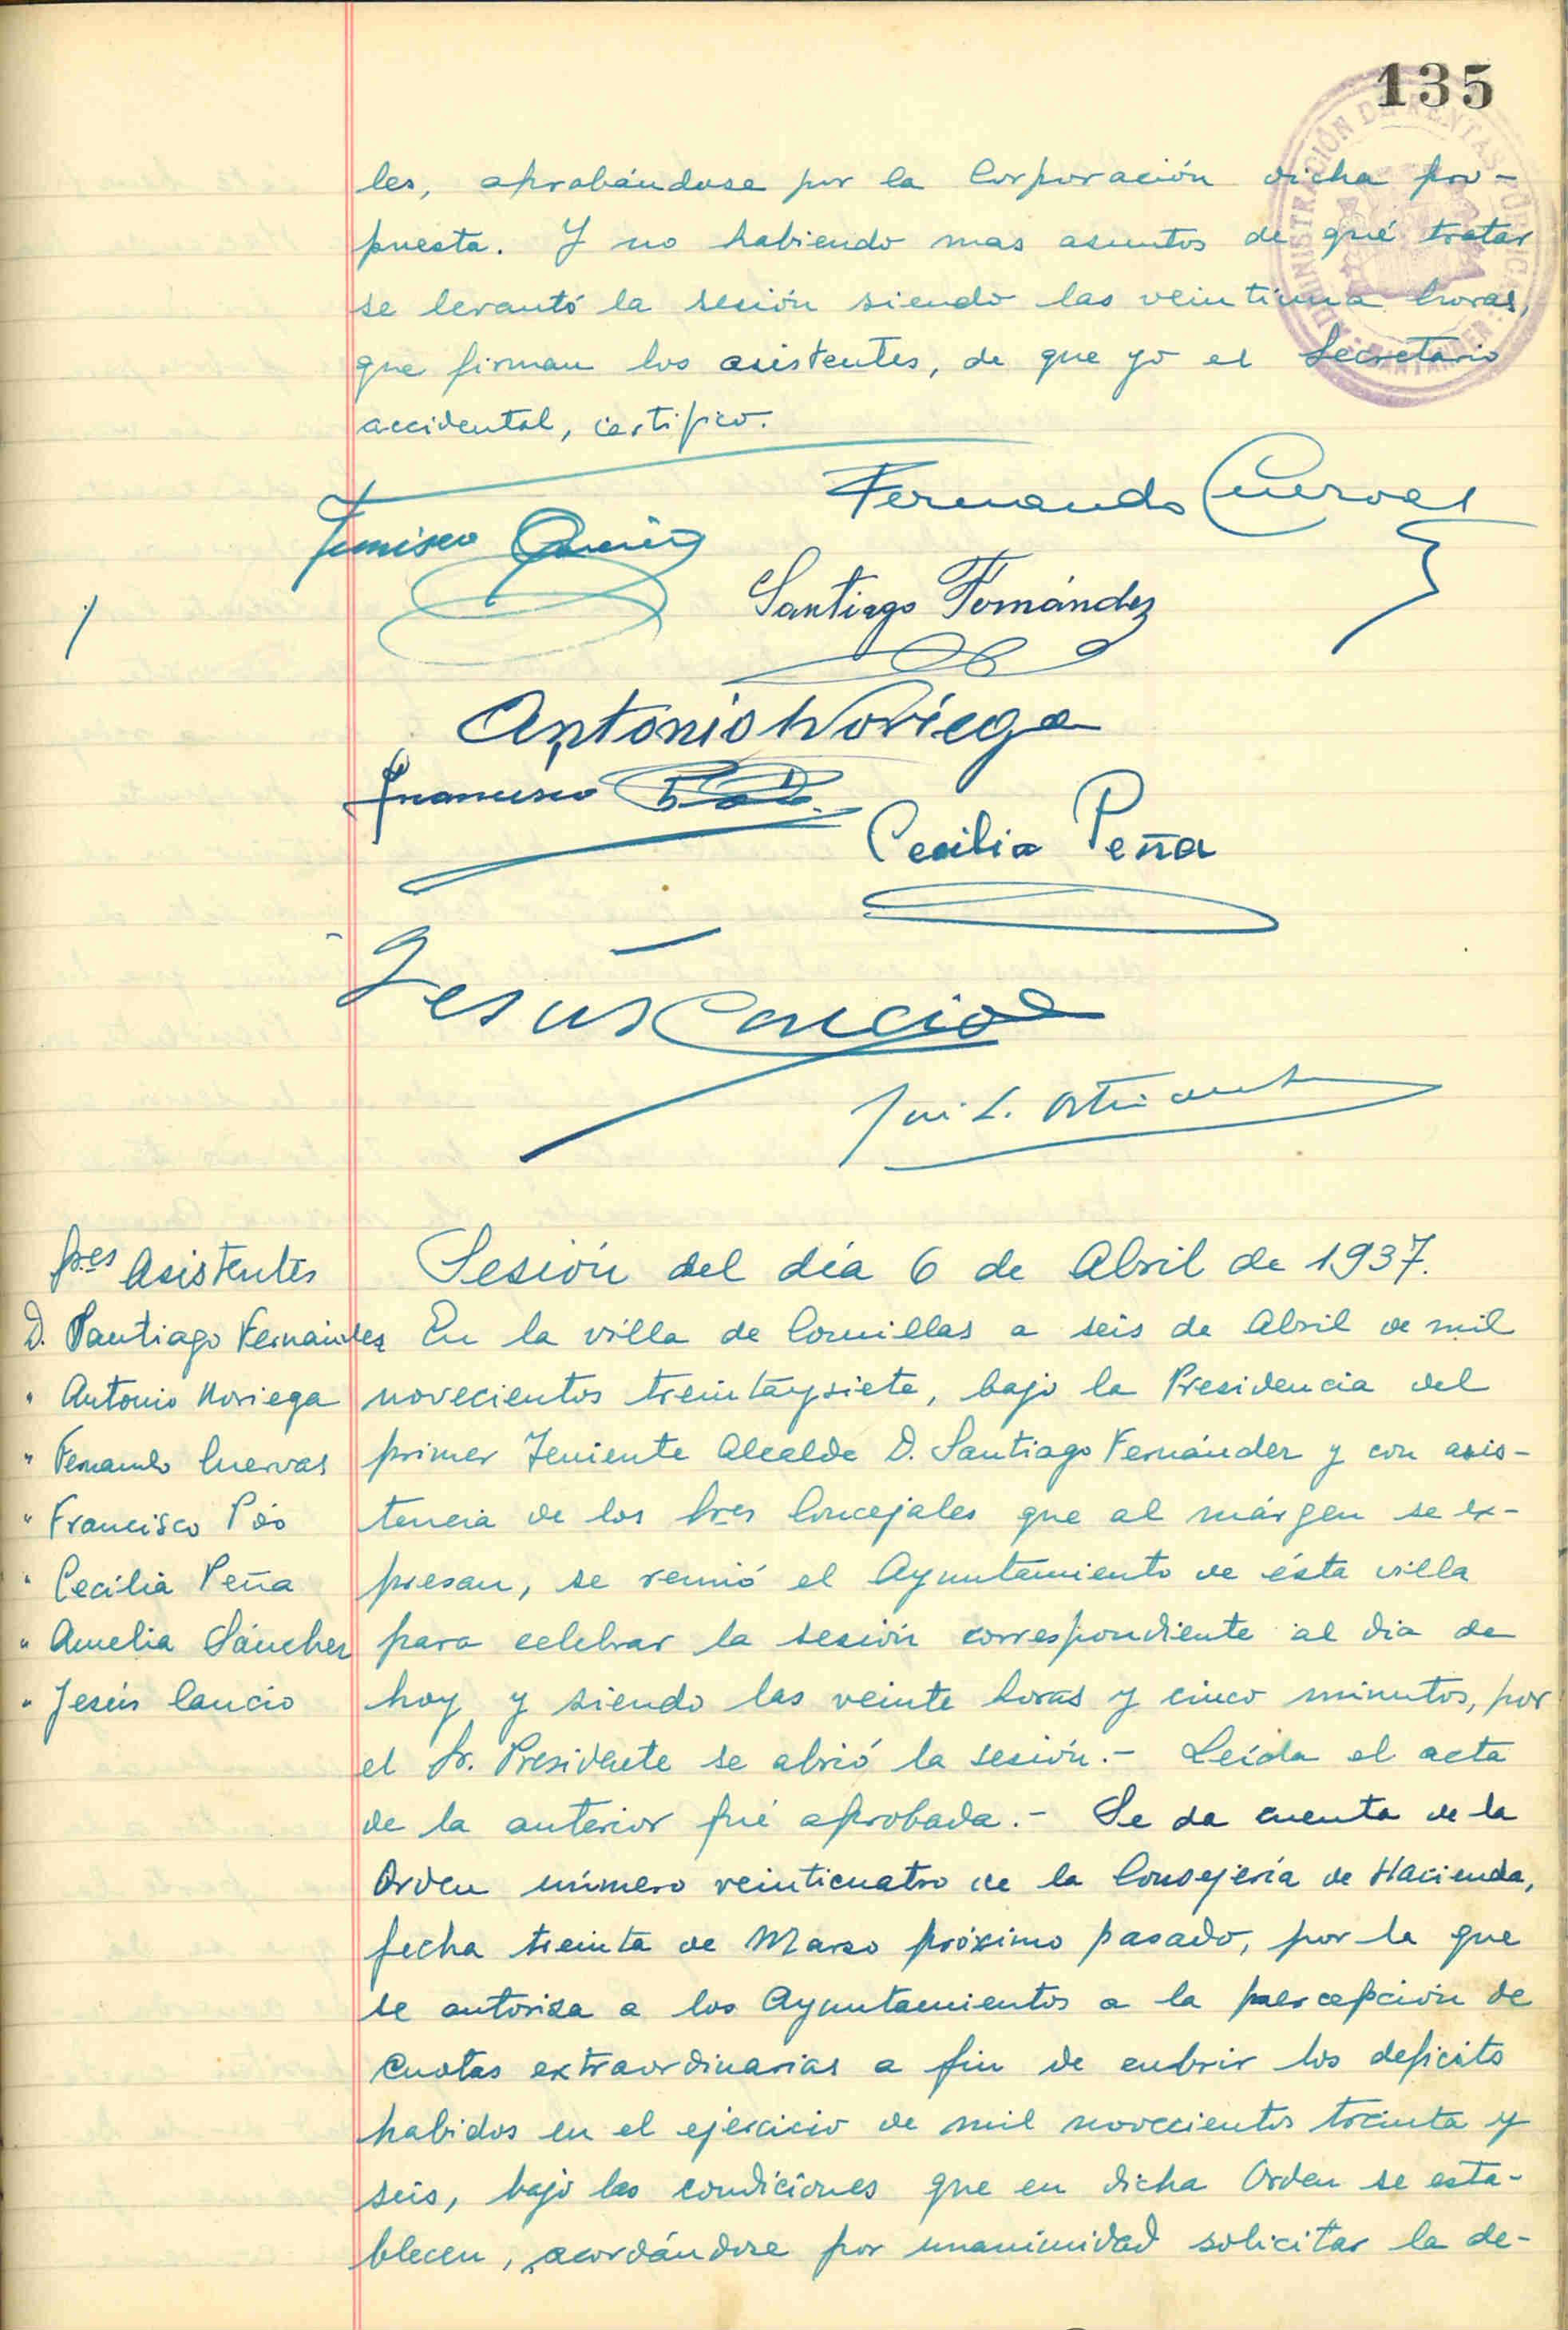 135
ADMINISTRACIÓN DE RENTAS PÚBLICAS
SANTANDER
les, aprobándose por la Corporación dicha pro-
puesta. Y no habiendo mas asuntos de qué tratar
se levantó la sesión siendo las veintiuna horas,
que firman los asistentes, de que yo el Secretario
accidental, certifico.
Fernando Cuervas
Santiago Fernández
Antonio Noriega
Francisco
Cecilia Peña
Jesús Cancio
Sres Asistentes
D. Santiago Fernández
" Antonio Noriega
" Fernando Cuervas
" Francisco Póo
" Cecilia Peña
" Amelia Sánchez
" Jesús Cancio
Sesión del día 6 de Abril de 1937.
En la villa de Comillas a seis de Abril de mil
novecientos treintaysiete, bajo la Presidencia del
primer Teniente Alcalde D. Santiago Fernández y con asis-
tencia de los Sres Concejales que al márgen se ex-
presan, se reunió el Ayuntamiento de ésta villa
para celebrar la sesión correspondiente al dia de
hoy y siendo las veinte horas y cinco minutos, por
el Sr. Presidente se abrió la sesión.- Leída el acta
de la anterior fué aprobada.- Se da cuenta de la
Orden número veinticuatro de la Consejería de Hacienda,
fecha treinta de Marzo próximo pasado, por la que
se autoriza a los Ayuntamientos a la percepción de
cuotas extraordinarias a fin de cubrir los deficits
habidos en el ejercicio de mil novecientos treinta y
seis, bajo las condiciones que en dicha Orden se esta-
blecen, acordándose por unanimidad solicitar la de-